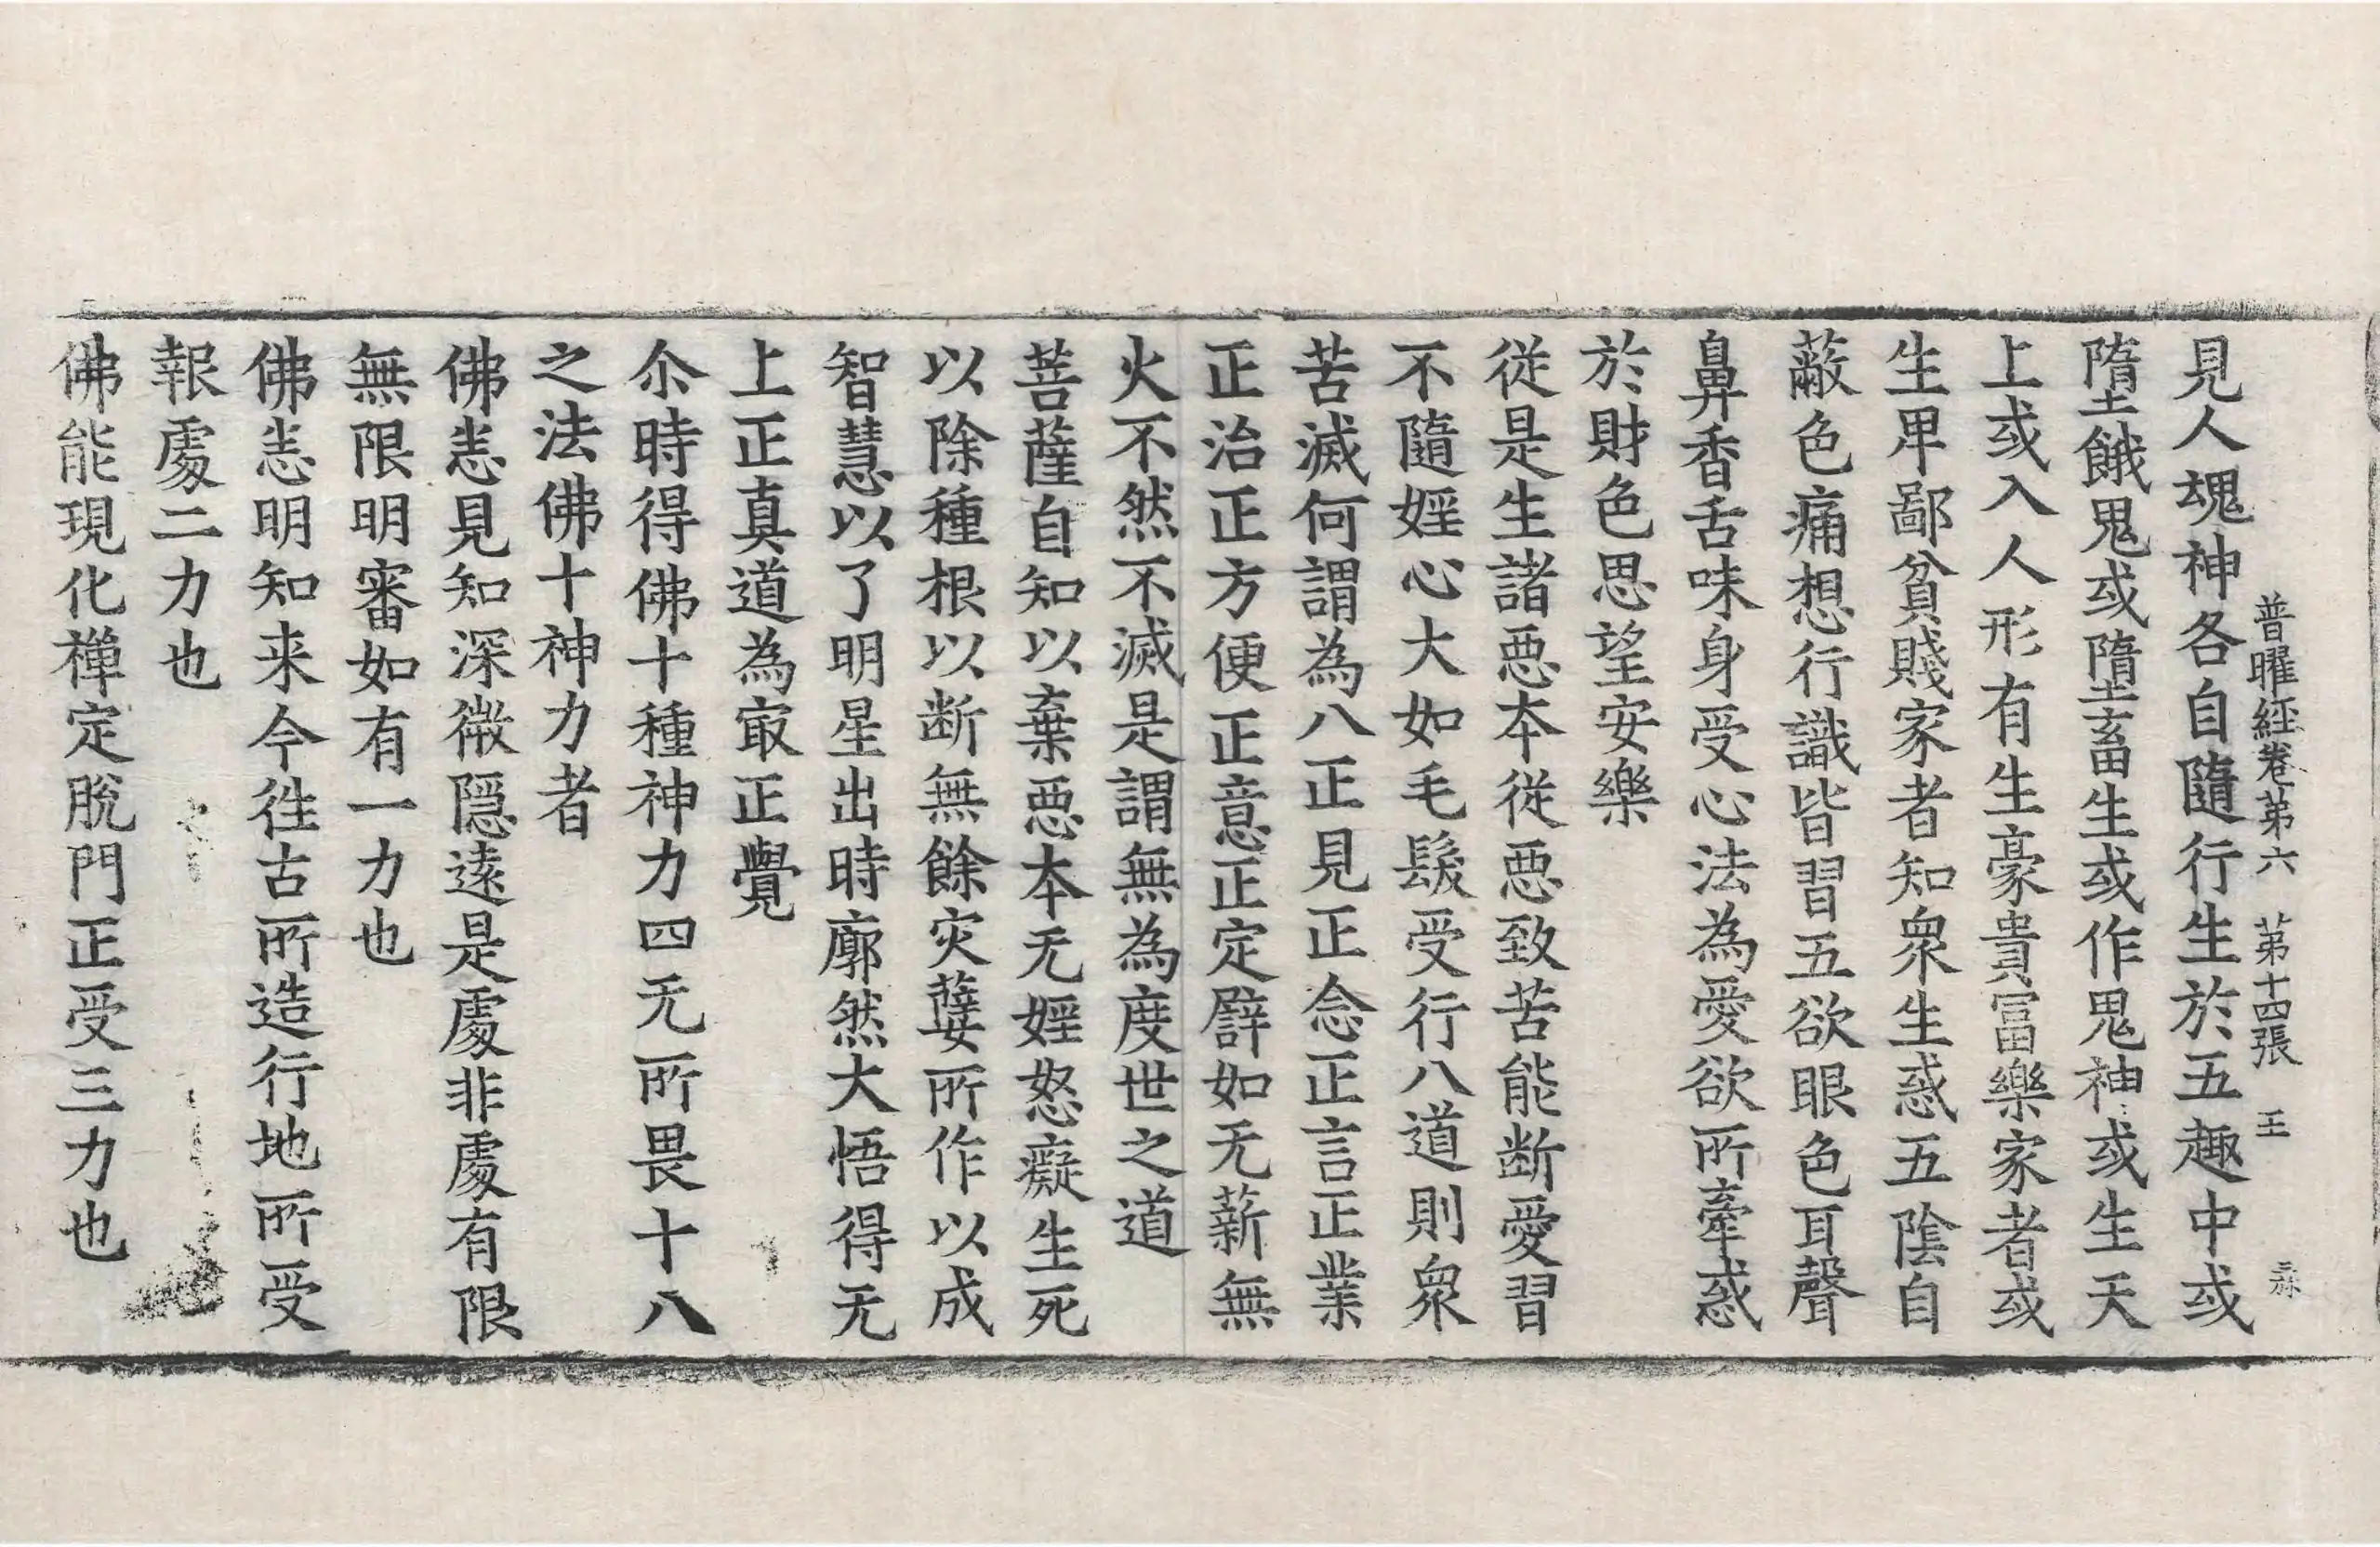 普曜經卷第六　第十四張　王
見人魂神各自隨行生於五趣中或
墮餓鬼或墮畜生或作鬼神或生天
上或入人形有生豪貴冨樂家者或
生卑鄙貧賤家者知衆生惑五陰自
蔽色痛想行識皆習五欲眼色耳聲
鼻香舌味身受心法為愛欲所牽惑
於財色思望安樂
従是生諸惡本従惡致苦能断愛習
不隨婬心大如毛髮受行八道則衆
苦滅何謂為八正見正念正言正業
正治正方便正意正定譬如无薪無
火不然不滅是謂無為度世之道
菩薩自知以棄惡本无婬怒癡生死
以除種根以断無餘灾孽所作以成
智慧以了明星出時廓然大悟得无
上正真道為㝡正覺
尒時得佛十種神力四无所畏十八
之法佛十神力者
佛悉見知深微隠遠是處非處有限
無限明審如有一力也
佛悉明知来今往古所造行地所受
報處二力也
佛能現化禅定脫門正受三力也